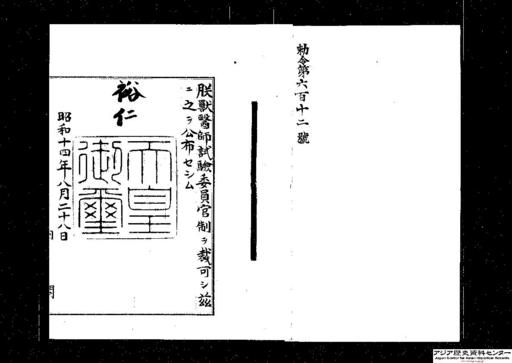 勅令第六百十二號
朕獸醫師試驗委員官制ヲ裁可シ茲
ニ之ヲ公布セシム
裕仁
天皇
御璽
昭和十四年八月二十八日
アジア歴史資料センター
Japan Center for Asian Historical Records